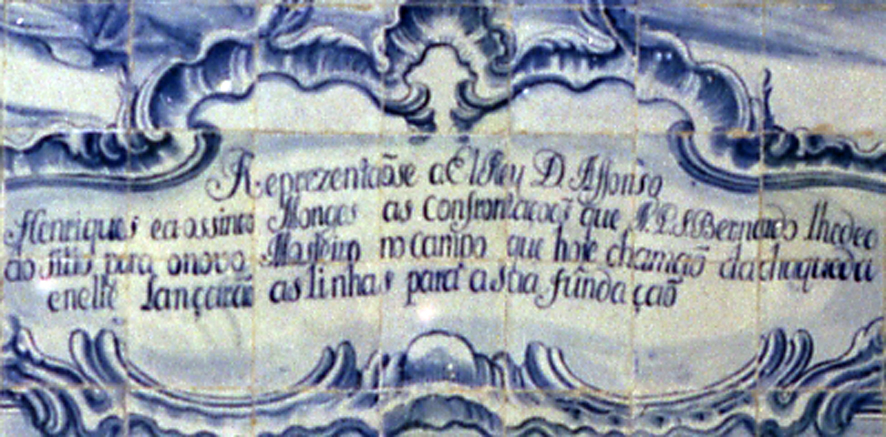 Reprezentaõse a ElRey D. Affonso
Henriques e a os sinco Monges as Confrontacoeš que N. P. S. Bernardo lhe deo
do sitio para o novo Mosteiro no campo que hoje chamaõ da chaqueda
e nelle Lançaraõ as linhas para a sua fundaçaõ